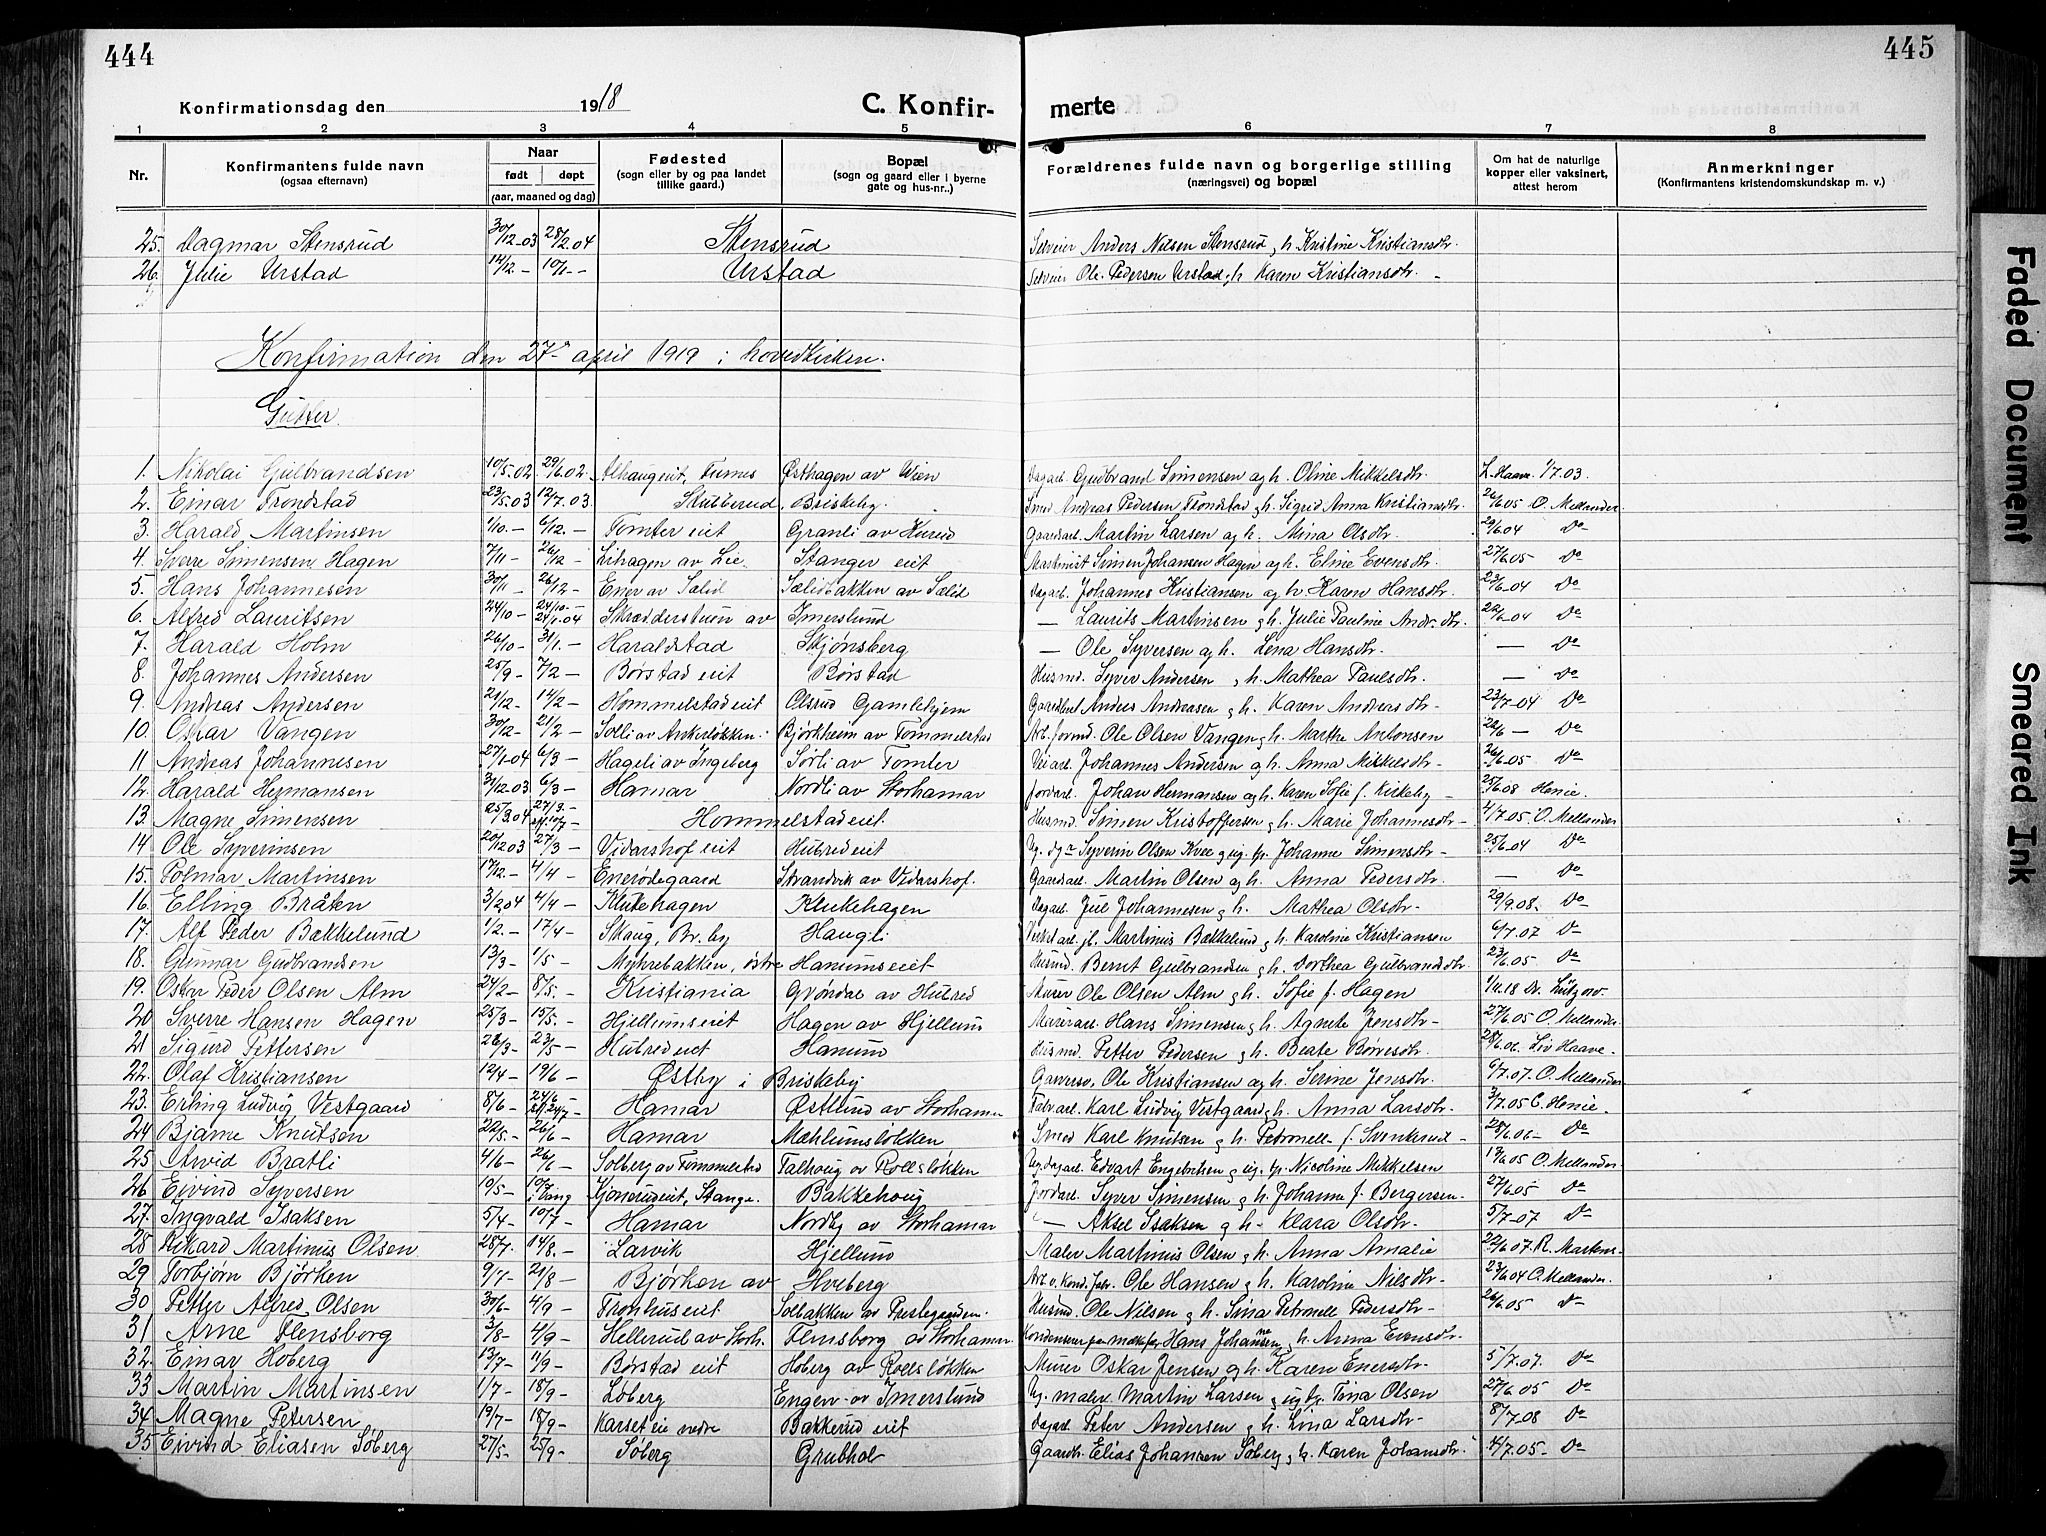 444
445
Konfirmationsdag den 1918
C. Konfir-
merte
1 2 3 4 5 6 7 8
Nr.
Konfirmantens fulde navn (ogsaa efternavn)
Naar født døpt (aar, maaned og dag)
Fødested (sogn eller by og paa landet tillike gaard.)
Bopæl (sogn og gaard eller i byerne gate og hus-nr..)
Forældrenes fulde navn og borgerlige stilling (næringsvei) og bopæl
Om hat de naturlige kopper eller vaksinert, attest herom
Anmerkninger (Konfirmantens kristendomskundskap m. v.)
25. Dagmar Stensrud 30/12-03 28/2.04 Stensrud Selveier Anders Nilsen Stensrud og h. Kristine Kristiansdtr.
26. Julie Urstad 12/12- 10/1- Urstad Selveier Ole Pedersen Urstad og h. Karen Kristiansdtr. -
Konfirmation den 27de april 1919 i hovedkirken.
Gutter.
1. Nikolai Gulbrandsen 10/5.02 29/6.02. Alhaugeiet, Furnes Østhagen av Wien Dagarb. Gudbrand Simensen og h. Oline Mikkelsdtr. L. Haave 1/7.03.
2. Einar Trondstad 23/5.03 12/7.03. Skubberud, Briskeby. Smed Andreas Pedersen Trondstad og h. Sigrid Anna Kristiansdtr. 26/6.05 O. Mellander
3. Harald Martinsen 1/10.- 6/12.- Tomter eiet Granli av Hurud Gaardsarb. Martin Larsen og h. Mina Olsdtr. 29/6.04 Do
4. Sverre Simensen Hagen 7/11- 26/12- Lihagen av Lie Stanger eiet Martinist Simen Johansen Hagen og h. Eline Evensdtr. 27/6.05 Do
5. Hans Johannesen 30/11- 26/12- Ener av Sælid Sælidbakken av Sælid Dagarb. Johannes Kristiansen og h. Karen Hansdtr. 23/6-04 Do
6. Alfred Lauritsen 24/10- 24/10- 24/1.04 Skrædderstuen av Imerslund — Laurits Martinsen og h. Julie Pauline Andr.dtr. 22/6-04 Do
7. Harald Holm 26/10- 31/1.- Haraldstad Skjønsberg — Ole Syversen og h. Lena Hansdtr. — Do
8. Johannes Andersen 25/9- 7/2- Børstad eiet Børstad Husmd. Syver Andersen og h. Mathea Paulsdtr. — Do
9. Andreas Andersen 21/12- 14/2- Hommelstadeiet Olsrud Gamlehjem Andres Andreasen og h. Karen Andreasdtr- 23/7-04 Do
10. Oskar Vangen 30/12- 21/2- Solli av Ankerløkken. Bjørkheim av Tommelstad Arb.formd. Ole Olsen Vangen og h. Marthe Antonsen 22/6- Do
11 Andreas Johannesen 27/1-04 6/3- Hageli av Ingeberg Sørli av Tomter Veiarb. Johannes Andersen og h. Anna Mikkelsdtr- 26/6.05 Do
12. Harald Hermansen 31/12 03 6/3- Hamar Nordli av Storhamar Jordarb. Johan Hermansen og h. Karen Sofie f. Kirkeby - 25/6 08 Henie.
13. Magne Simensen 25/3.04 27/3.- Hommelstadeiet Husmd. Simen Kristoffersen og h. Marie Johannesdtr- 4/7.05. O. Mellander
14 Ole Syverinsen 20/12 03 27/3- Vidarshof eiet Hubredeiet Syverin Olsen Kvee og ug. p. Johanne Simensdtr- 25/6-04 Do
15. Polmar Martinsen 17/12- 4/4- Enerødegaard Strandvik av Vidarshof. Gaardsarb. Martin Olsen og h. Anna Pedersdtr. — Do
16. Elling Bråten 3/2 04 4/4- Klukehagen Klukehagen Dagarb. Juel Johannesen og h. Mathea Olsdtr- 29/9.08. Do
17. Alf Peder Bækkelund 1/2.- 17/4- Skaug, Br.by Haugli Martinus Bækkelund og h. Karoline Kristiansen 6/7.07 Do
18. Gunnar Gudbrandsen 13/3- 1/5- Myhrebakken, østre Hanumseiet Husmd. Bernt Gulbrandsen og h. Dorthea Gulbrandsdtr 23/6.05 Do
19. Oskar Peder Olsen Alm 24/2- 8/5.- Kristiania Grøndal av Hubred Murer Ole Olsen Alm og h. Sofie f. Hagen 1/11.18 Dr. Lützow.
20 Sverre Hansen Hagen 25/3- 15/5.- Hjellumseiet Hagen av Hjellum Murerarb. Hans Simensen og h. Agnete Jensdtr- 27/6.05 O. Mellander.
21 Sigurd Pettersen 26/3- 23/5- Hubredeiet Hanum Husmd. Petter Pedersen og h. Beate Børresdtr. 28/6.06. Liv Haave.
22. Olaf Kristiansen 12/4- 19/6- Østby i Briskeby Garverarb. Ole Kristiansen og h. Serine Jensdtr. 6/7.07. O. Mellander
23. Erling Ludvig Vestgaard 8/6- 24/6- Hamar Østlund av Storhamar Fabr.arb. Karl Ludvig Vestgaard og h. Anna Larsdtr. 3/7.05 C. Henie.
24 Bjarne Knutsen 22/5.- 26/6- Hamar Mæhlumsløkken Smed Karl Knutsen og h. Petronelle f. Svenkerud - 28/6.06- Do
25 Arvid Bratli 4/6- 26/6- Solberg av Tommelstad Falhoug av Rollsløkken Ug.dagarb. Edvart Engebretsen og ug. p. Nicoline Mikkelsen 19/6 05 O. Mellander.
26 Eivind Syversen 19/5- 10/7- i Vang Gjønerudeiet, Stange. Bakkehoug Jordarb. Syver Simensen og h. Johanne f. Bergersen. 27/6.05 Do
27. Ingvald Isaksen 5/4- 10/7- Hamar Nordby av Storhamar — Aksel Isaksen og h- Klara Olsdtr. 5/7-07 Do
28 Rikard Martinus Olsen 28/7. 14/8.- Larvik Hjellum Maler Martinus Olsen og h. Anna Amalie 22/6 07. R. Martens.
29 Torbjørn Bjørken 9/7- 21/8- Bjørken av Hveberg Ole Hansen og h. Karoline Nilsdtr- 23/6 04 O. Mellander.
30 Petter Alfred Olsen 30/6- 4/9- Tronhuseiet Solbakken av Prestegaarden. Husmd. Ole Nilsen og h. Lina Petronelle Pedersdtr- 26/6.05 Do
31 Arne Flensborg 3/8- 4/9- Hellerud av Storh. Flensborg av Storhamar. Hans Johansen og h. Anna Evensdtr-
32. Einar Hoberg 13/7- 11/9- Børstad eiet Hoberg av Rollsløkken Murer Oskar Jensen og h. Karen Enersdtr- 5/7.07. Do
33 Martin Martinsen 1/7- 18/9- Løberg Engen av Imerslund Ug. maler Martin Larsen og ug. p. Tina Olsen 27/6.05 Do
34 Magne Petersen 19/7- 18/9- Karset eie nedre Bakkerud eiet Dagarb. Peter Andersen og h. Lina Larsdtr- 8/7.08 Do
35 Eivind Eliasen Søberg 27/5- 25/9- Søberg Grubhol Gaardbr. Elias Johansen Søberg og h. Karen Johansdtr. 4/7.05- Do
Faded Document
Smeared Ink